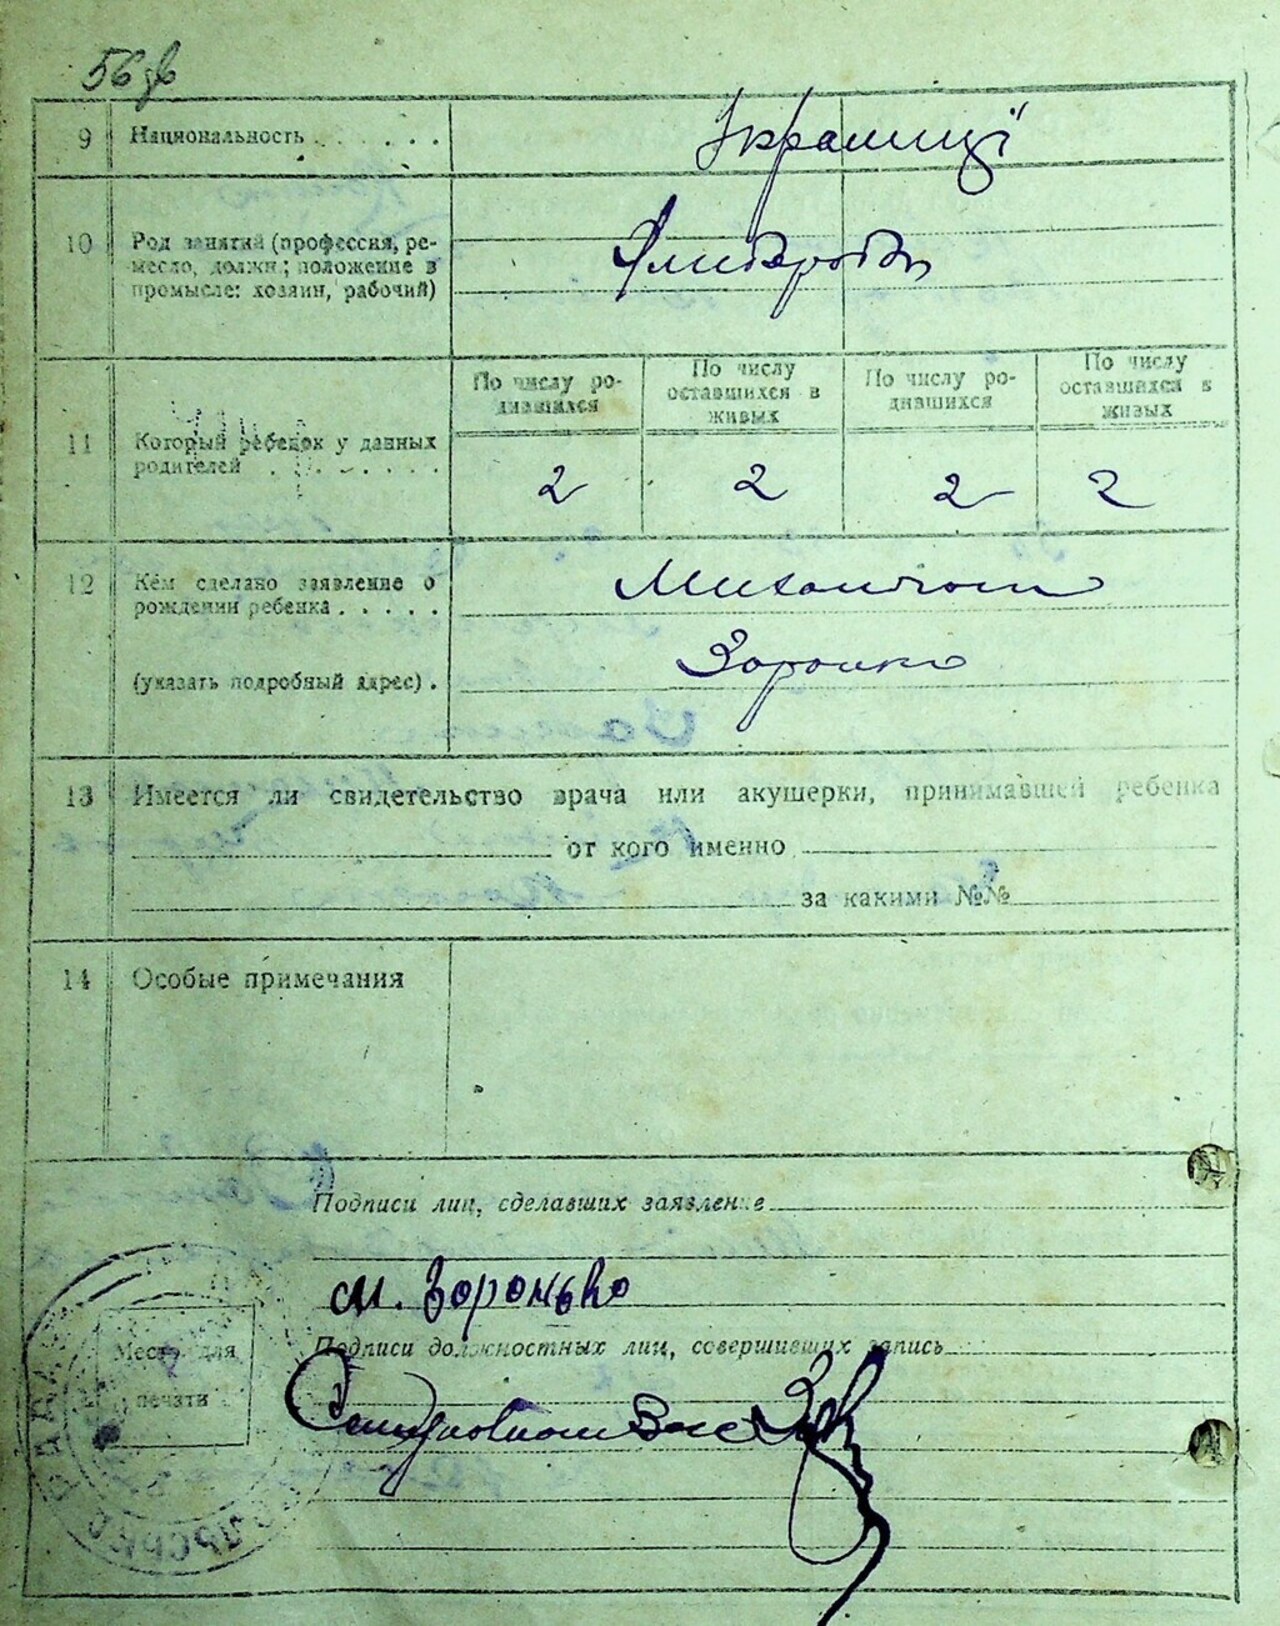 56 зв
9 Национальность . . . . . . Українці
10 Род занятий (профессия, ре-
месло, должн.; положение в
промысле: хозяин, рабочий)
Хлібороби
По числу ро-
дившихся
По числу
оставшихся в
живых
По числу ро-
дившихся
По числу
оставшихся в
живых
11 Который ребенок у данных
родителей . . . . . . .
2 2 2 2
12 Кем сделано заявление о
рождении ребенка . . . . .
(указать подробный адрес) .
Зоронько
13 Имеется ли свидетельство врача или акушерки, принимавшей ребенка
от кого именно
за какими №№
14 Особые примечания
Подписи лиц, сделавших заявление
М. Зоронько
Место для
печати
Подписи должностных лиц, совершивших запись